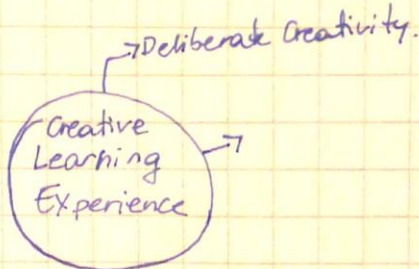 Deliberate Creativity.
Creative
Learning
Experience